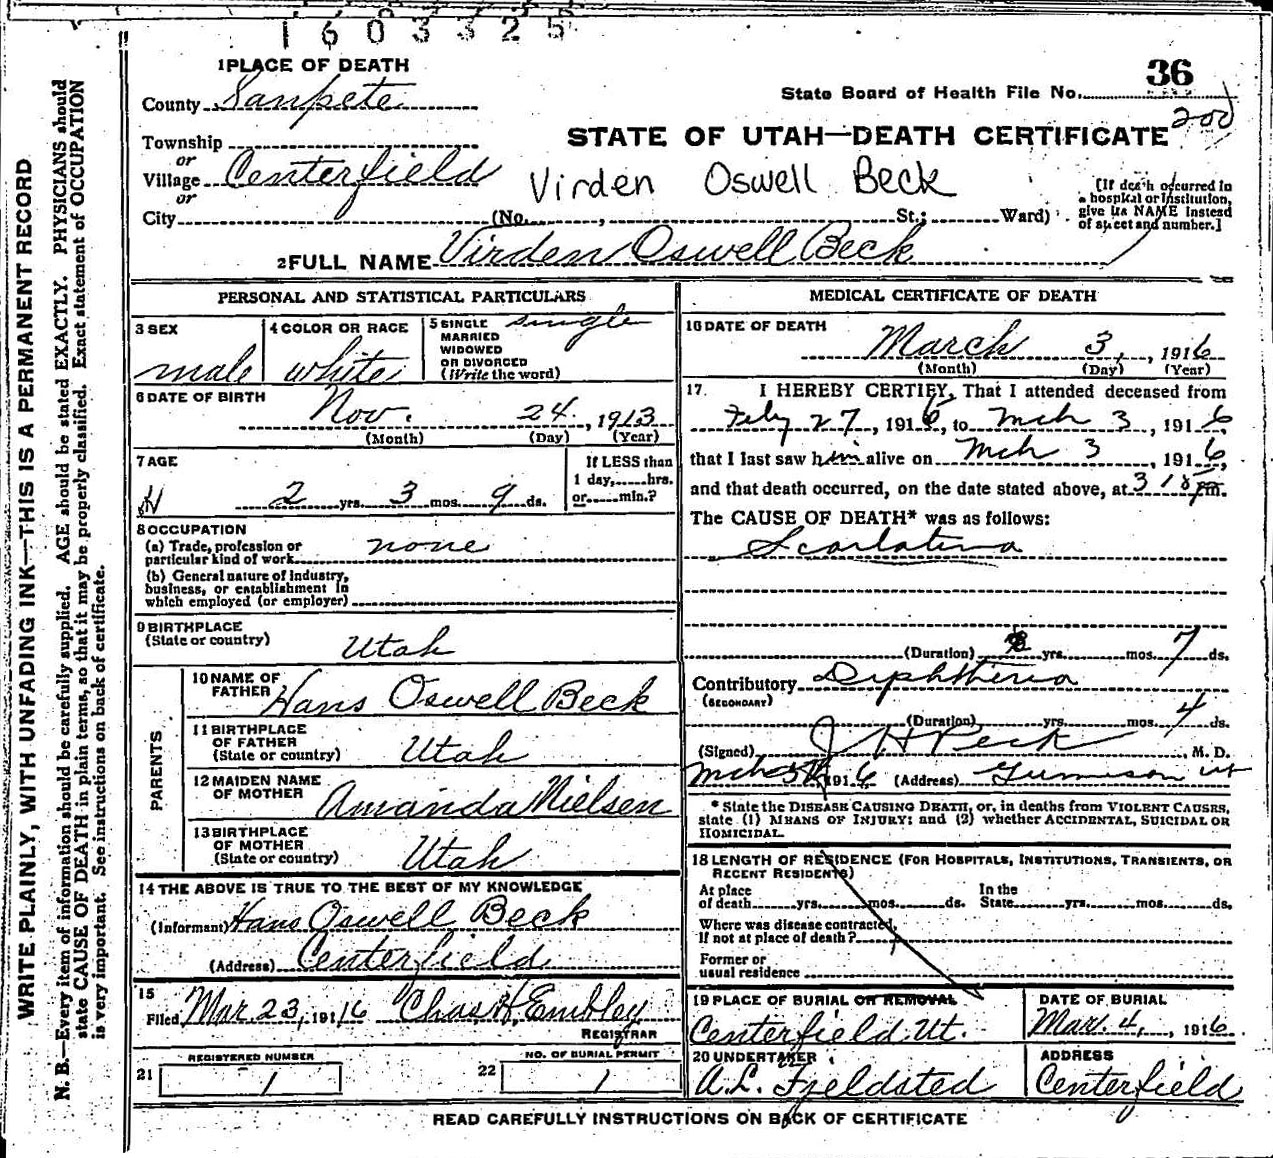 1603325
1 PLACE OF DEATH
36
County Sanpete
State Board of Health File No.
200
Township
or
STATE OF UTAH—DEATH CERTIFICATE
Village Centerfield
or
Virden Oswell Beck
City (No. , St.; Ward)
[If death occurred in
a hospital or institution,
give its NAME instead
of street and number.]
2 FULL NAME Virden Oswell Beck
PERSONAL AND STATISTICAL PARTICULARS
3 SEX
male
4 COLOR OR RACE
white
5 SINGLE
MARRIED
WIDOWED
OR DIVORCED
(Write the word)
single
6 DATE OF BIRTH
Nov. 24, 1913
(Month) (Day) (Year)
7 AGE
2 yrs. 3 mos. 9 ds.
If LESS than
1 day, hrs.
or min.?
8 OCCUPATION
(a) Trade, profession or
particular kind of work none
(b) General nature of industry,
business, or establishment in
which employed (or employer)
9 BIRTHPLACE
(State or country) Utah
PARENTS
10 NAME OF
FATHER Hans Oswell Beck
11 BIRTHPLACE
OF FATHER
(State or country) Utah
12 MAIDEN NAME
OF MOTHER Amanda Nielsen
13 BIRTHPLACE
OF MOTHER
(State or country) Utah
14 THE ABOVE IS TRUE TO THE BEST OF MY KNOWLEDGE
(Informant) Hans Oswell Beck
(Address) Centerfield
15
Filed Mar. 23, 1916 Chas H. Embley
REGISTRAR
REGISTERED NUMBER
21 1
NO. OF BURIAL PERMIT
22 1
MEDICAL CERTIFICATE OF DEATH
16 DATE OF DEATH
March 3, 1916
(Month) (Day) (Year)
17. I HEREBY CERTIFY, That I attended deceased from
Feby 27, 1916, to Mch 3, 1916,
that I last saw him alive on Mch 3, 1916,
and that death occurred, on the date stated above, at 3 pm.
The CAUSE OF DEATH* was as follows:
Scarlatina
(Duration) yrs. mos. 7 ds.
Contributory Diphtheria
(SECONDARY)
(Duration) yrs. mos. 4 ds.
(Signed) J H Peck, M. D.
Mch 1916 (Address) Gunnison Ut
* State the DISEASE CAUSING DEATH, or, in deaths from VIOLENT CAUSES,
state (1) MEANS OF INJURY; and (2) whether ACCIDENTAL, SUICIDAL OR
HOMICIDAL.
18 LENGTH OF RESIDENCE (FOR HOSPITALS, INSTITUTIONS, TRANSIENTS, OR
RECENT RESIDENTS)
At place
of death yrs. mos. ds.
In the
State yrs. mos. ds.
Where was disease contracted,
If not at place of death?
Former or
usual residence
19 PLACE OF BURIAL OR REMOVAL
Centerfield Ut.
DATE OF BURIAL
Mar. 4, 1916
20 UNDERTAKER
A. L. Fjeldsted
ADDRESS
Centerfield
READ CAREFULLY INSTRUCTIONS ON BACK OF CERTIFICATE
WRITE PLAINLY, WITH UNFADING INK—THIS IS A PERMANENT RECORD
N. B.—Every item of information should be carefully supplied. AGE should be stated EXACTLY. PHYSICIANS should
state CAUSE OF DEATH in plain terms, so that it may be properly classified. Exact statement of OCCUPATION
is very important. See instructions on back of certificate.